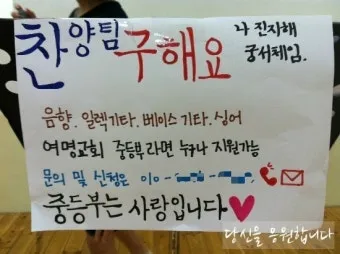 찬양팀 구해요
나 진지해
궁서체임.
음향. 일렉기타. 베이스 기타. 싱어
여명교회 중등부라면 누구나 지원가능
문의 및 신청은 010-
중등부는 사랑입니다♥
당신을 응원합니다